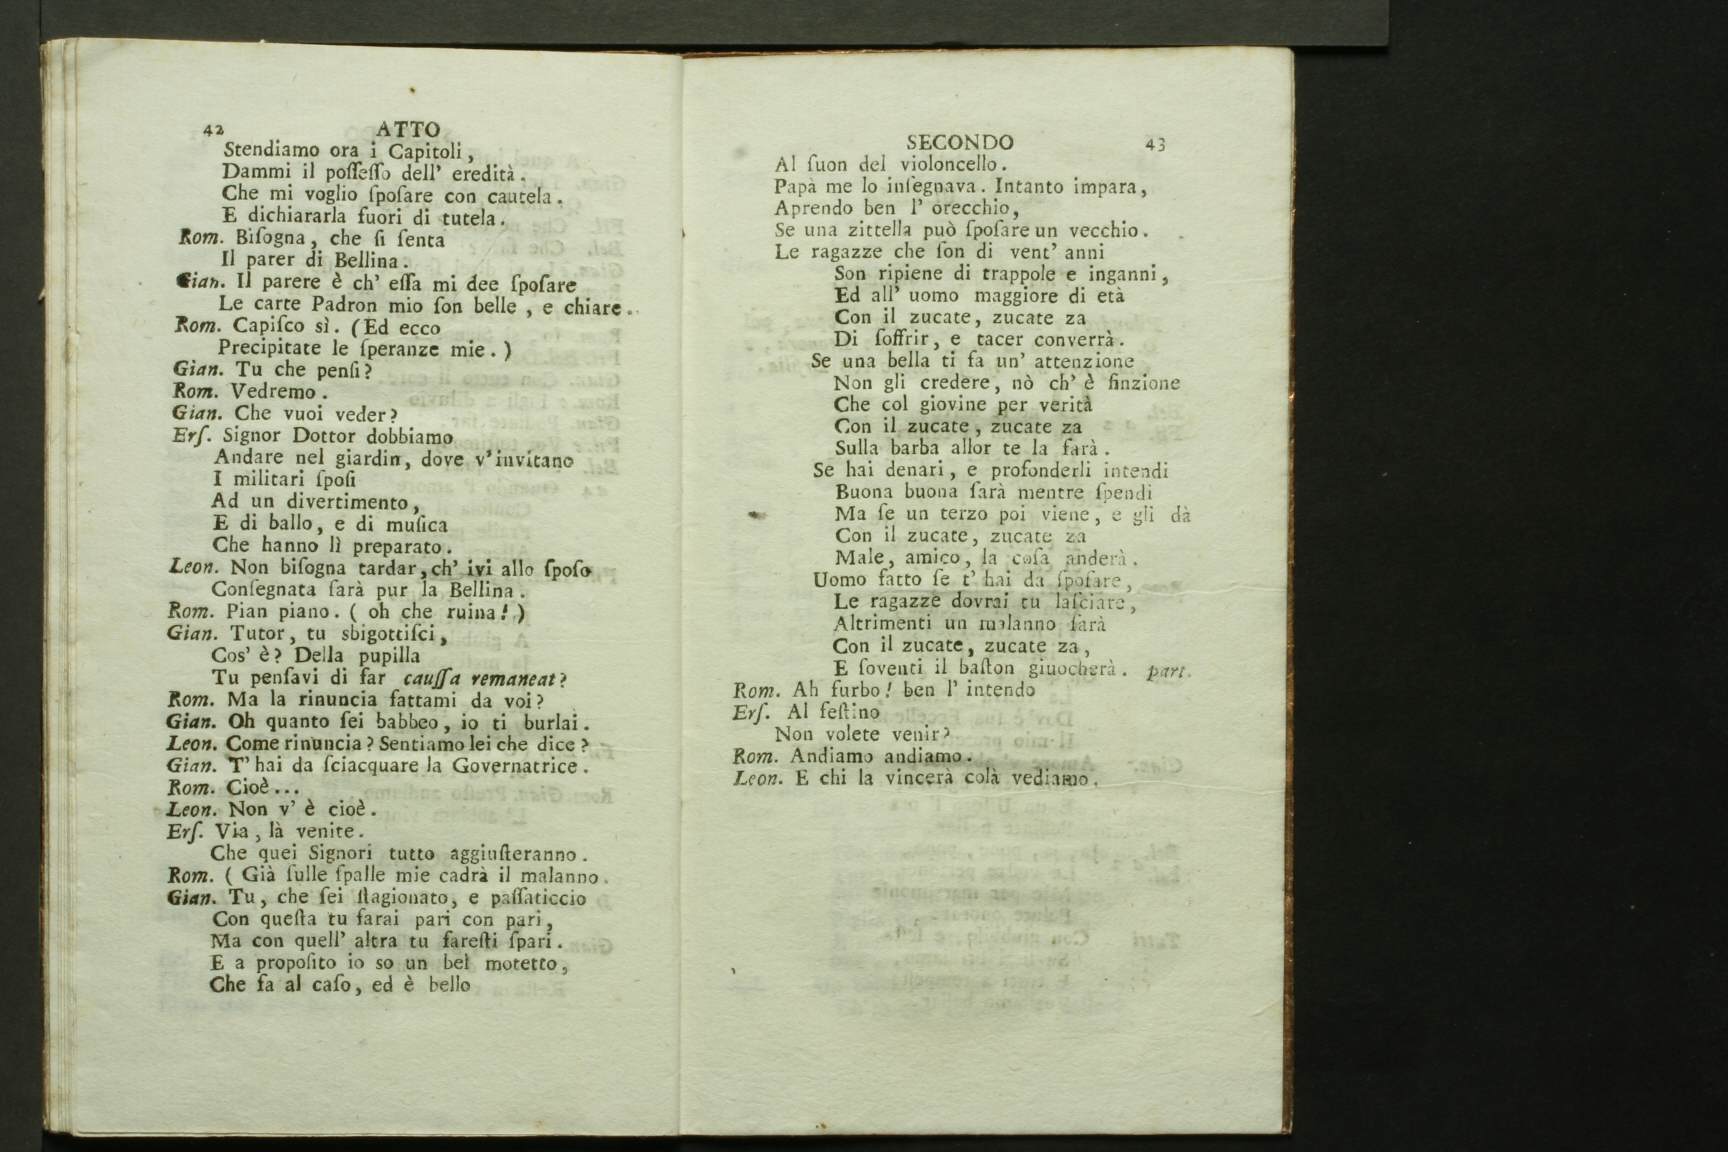 42 ATTO
Stendiamo ora i Capitoli,
Dammi il poſſeſſo dell' eredità.
Che mi voglio ſpoſare con cautela.
E dichiararla fuori di tutela.
Rom. Biſogna, che ſi ſenta
Il parer di Bellina.
Gian. Il parere è ch' eſſa mi dee ſpoſare
Le carte Padron mio ſon belle, e chiare.
Rom. Capiſco sì. (Ed ecco
Precipitate le ſperanze mie.)
Gian. Tu che penſi?
Rom. Vedremo.
Gian. Che vuoi veder?
Erſ. Signor Dottor dobbiamo
Andare nel giardin, dove v'invitano
I militari ſpoſi
Ad un divertimento,
E di ballo, e di muſica
Che hanno lì preparato.
Leon. Non biſogna tardar, ch' ivi allo ſpoſo
Conſegnata ſarà pur la Bellina.
Rom. Pian piano. ( oh che ruina!)
Gian. Tutor, tu sbigottiſci,
Cos' è? Della pupilla
Tu penſavi di far cauſſa remaneat?
Rom. Ma la rinuncia fattami da voi?
Gian. Oh quanto ſei babbeo, io ti burlai.
Leon. Come rinuncia? Sentiamo lei che dice?
Gian. T' hai da ſciacquare la Governatrice.
Rom. Cioè...
Leon. Non v' è cioè.
Erſ. Via, là venite.
Che quei Signori tutto aggiuſteranno.
Rom. ( Già ſulle ſpalle mie cadrà il malanno.
Gian. Tu, che ſei ſtagionato, e paſſaticcio
Con queſta tu farai pari con pari,
Ma con quell' altra tu fareſti ſpari.
E a propoſito io so un bel motetto,
Che fa al caſo, ed è bello
SECONDO 43
Al ſuon del violoncello.
Papà me lo inſegnava. Intanto impara,
Aprendo ben l' orecchio,
Se una zittella può ſpoſare un vecchio.
Le ragazze che ſon di vent' anni
Son ripiene di trappole e inganni,
Ed all' uomo maggiore di età
Con il zucate, zucate za
Di ſoffrir, e tacer converrà.
Se una bella ti fa un' attenzione
Non gli credere, nò ch' è finzione
Che col giovine per verità
Con il zucate, zucate za
Sulla barba allor te la farà.
Se hai denari, e profonderli intendi
Buona buona ſarà mentre ſpendi
Ma ſe un terzo poi viene, e gli dà
Con il zucate, zucate za
Male, amico, la coſa anderà.
Uomo fatto ſe t' hai da ſpoſare,
Le ragazze dovrai tu laſciare,
Altrimenti un malanno ſarà
Con il zucate, zucate za,
E ſoventi il baſton giuocherà. part.
Rom. Ah furbo! ben l' intendo
Erſ. Al feſtino
Non volete venir?
Rom. Andiamo andiamo.
Leon. E chi la vincerà colà vediamo.